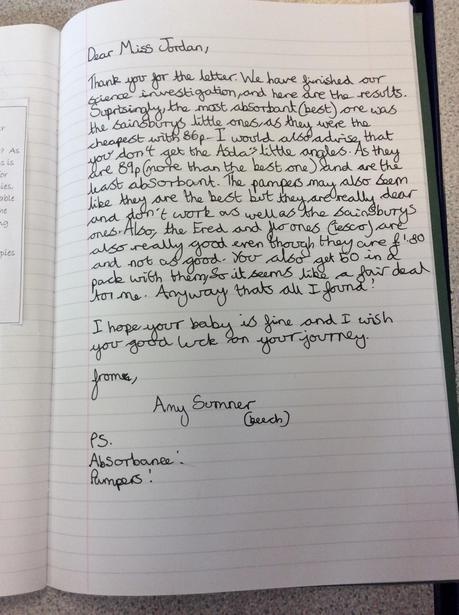 Dear Miss Jordan,
Thank you for the letter. We have finished our
science investigation, and here are the results.
Suprtsingly, the most absorbant (best) one was
the sainsburys little ones, as they were the
cheapest with 86p. I would also advise that
you don't get the Asda's little angles. As they
are 89p (more than the best one) and are the
least absorbant. The pampers may also seem
like they are the best but they are really dear
and don't work as well as the sainsburys
ones. Also, the Fred and flo ones (tesco) are
also really good even though they are £1.80
and not as good. You also get 50 in a
pack with them, so it seems like a fair deal
for me. Anyway thats all I found!
I hope your baby is fine and I wish
you good luck on your journey.
from,
Amy Sumner
(beech)
PS.
Absorbance:
Pampers:
r
? As
s is
or
ies.
able
ne
ng
pies